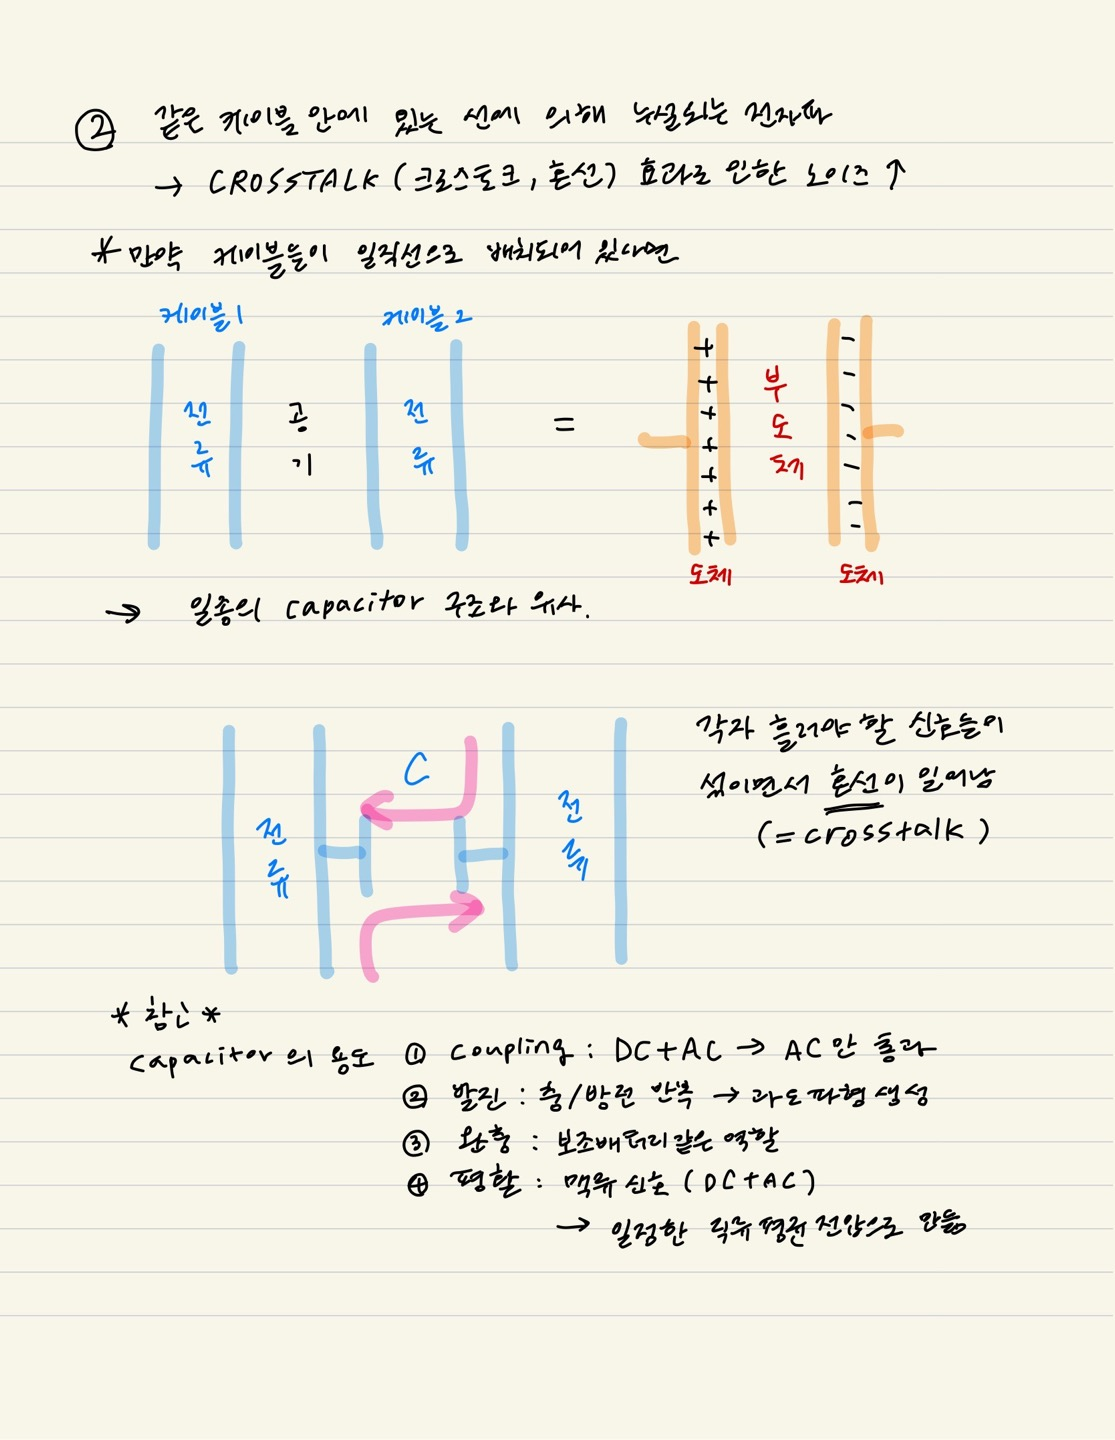 ② 같은 케이블 안에 있는 선에 의해 누설되는 전자파
→ CROSSTALK (크로스토크, 혼선) 효과로 인한 노이즈 ↑
* 만약 케이블들이 일직선으로 배치되어 있다면
케이블1 케이블2
전류 공기 전류 = + + + + + + + 부도체 - - - - - - -
도체 도체
→ 일종의 capacitor 구조와 유사.
각자 흘러야 할 신호들이
섞이면서 혼선이 일어남
(= crosstalk)
전류 C 전류
* 참고 *
capacitor의 용도 ① coupling : DC+AC → AC만 통과
② 발진 : 충/방전 반복 → 과도파형 생성
③ 완충 : 보조배터리 같은 역할
④ 평활 : 맥류 신호 (DC+AC)
→ 일정한 직류평균 전압으로 만듦